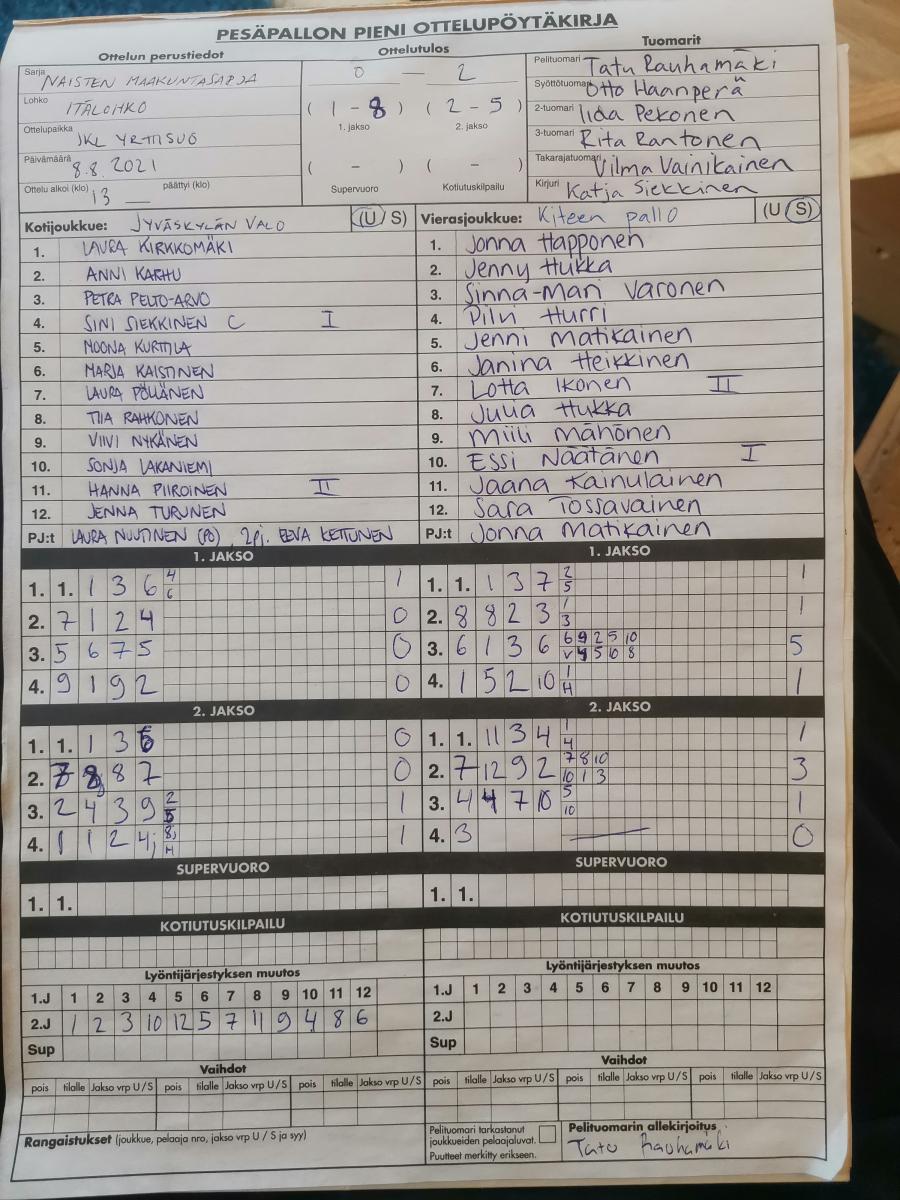 PESÄPALLON PIENI OTTELUPÖYTÄKIRJA
Ottelun perustiedot Ottelutulos Tuomarit
Sarja NAISTEN MAAKUNTASARJA
Lohko ITÄLOHKO
Ottelupaikka JKL YRTTISUO
Päivämäärä 8.8.2021
Ottelu alkoi (klo) 13 — päättyi (klo)
0 — 2
( 1 - 8 ) ( 2 - 5 )
1. jakso 2. jakso
( - ) ( - )
Supervuoro Kotiutuskilpailu
Pelituomari Tatu Rauhamäki
Syöttötuomari Otto Haanperä
2-tuomari Iida Pekonen
3-tuomari Rita Rantonen
Takarajatuomari Vilma Vainikainen
Kirjuri Katja Siekkinen
Kotijoukkue: JYVÄSKYLÄN VALO (U / S)
1. LAURA KIRKKOMÄKI
2. ANNI KARHU
3. PETRA PELTO-ARVO
4. SINI SIEKKINEN C I
5. NOONA KURTTILA
6. MARJA KAISTINEN
7. LAURA PÖLLÄNEN
8. TIIA RAHKONEN
9. VIIVI NYKÄNEN
10. SONJA LAKANIEMI
11. HANNA PIIROINEN II
12. JENNA TURUNEN
PJ:t LAURA NUUTINEN (PJ), 2pj. EEVA KETTUNEN
Vierasjoukkue: Kiteen pallo (U / S)
1. Jonna Happonen
2. Jenny Hukka
3. Sinna-Mari Varonen
4. Pilvi Hurri
5. Jenni Matikainen
6. Janina Heikkinen
7. Lotta Ikonen II
8. Julia Hukka
9. Miili Mähönen
10. Essi Näätänen I
11. Jaana Kainulainen
12. Sara Tossavainen
PJ:t Jonna Matikainen
1. JAKSO
1. 1. 1 3 6 4 6 1
2. 7 1 2 4 0
3. 5 6 7 5 0
4. 9 1 9 2 0
2. JAKSO
1. 1. 1 3 0
2. 8 7 0
3. 2 4 3 9 2 1
4. 1 1 2 4 8 H 1
SUPERVUORO
1. 1.
KOTIUTUSKILPAILU
1. JAKSO
1. 1. 1 3 7 2 5 1
2. 8 8 2 3 1 3 1
3. 6 1 3 6 6 9 2 5 10 V 4 5 10 8 5
4. 1 5 2 10 1 H 1
2. JAKSO
1. 1. 11 3 4 1 4 1
2. 7 12 9 2 7 8 10 10 1 3 3
3. 4 4 7 10 5 10 1
4. 3 — 0
SUPERVUORO
1. 1.
KOTIUTUSKILPAILU
Lyöntijärjestyksen muutos
1.J 1 2 3 4 5 6 7 8 9 10 11 12
2.J 1 2 3 10 12 5 7 11 9 4 8 6
Sup
Vaihdot
pois tilalle Jakso vrp U / S pois tilalle Jakso vrp U / S pois tilalle Jakso vrp U / S
Lyöntijärjestyksen muutos
1.J 1 2 3 4 5 6 7 8 9 10 11 12
2.J
Sup
Vaihdot
pois tilalle Jakso vrp U / S pois tilalle Jakso vrp U / S pois tilalle Jakso vrp U / S
Rangaistukset (joukkue, pelaaja nro, jakso vrp U / S ja syy)
Pelituomari tarkastanut
joukkueiden pelaajaluvat.
Puutteet merkitty erikseen.
Pelituomarin allekirjoitus
Tatu Rauhamäki